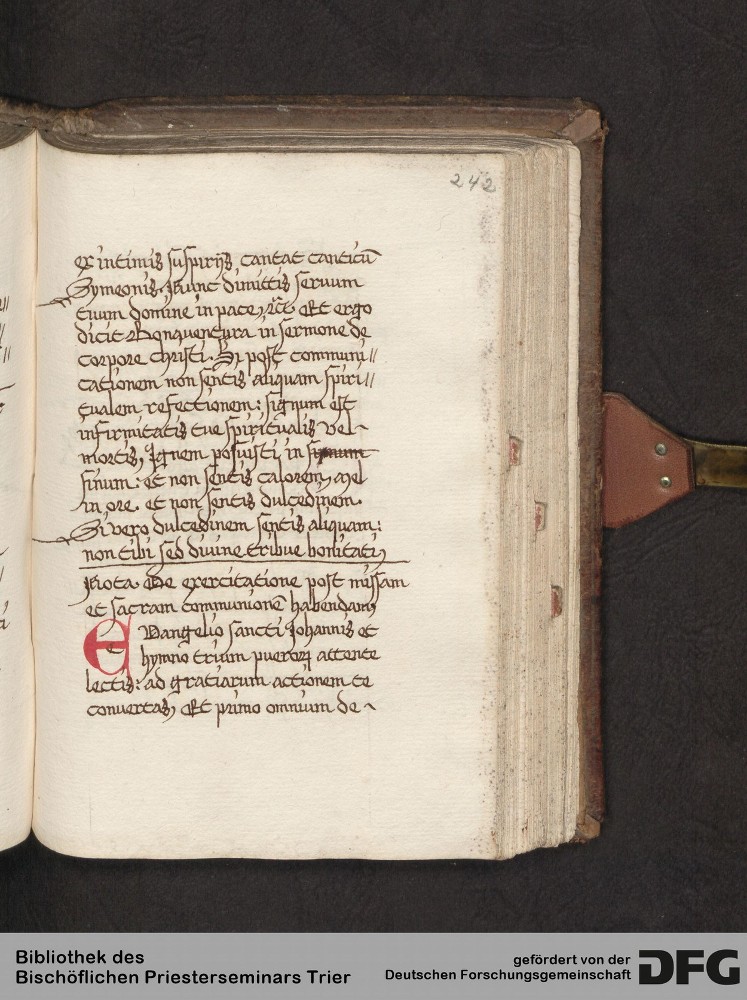 242
ex intimis suspirijs cantat canticū
Symeonis. Nunc dimittis seruum
tuum domine in pace, &c̄. Et ergo
dicit Bonauentura in sermone de
corpore christi. Si post communi//
cationem non sentis aliquam spiri//
tualem refectionem: signum est
infirmitatis tue spiritualis vel-
mortis, Ignem posuisti in
sinum: et non sentis calorem, mel
in ore. et non sentis dulcedinem.
Si vero dulcedinem sentis aliquam:
non tibi sed diuine tribue bonitati,
Nota. De exercitatione post missam
et sacram communionē habendam,
Evangelio sancti Johannis et
hymno trium pueroꝝ attente
lectis: ad gratiarum actionem te
conuertas, Et primo omnium de-
Bibliothek des
Bischöflichen Priesterseminars Trier
gefördert von der
Deutschen Forschungsgemeinschaft
DFG